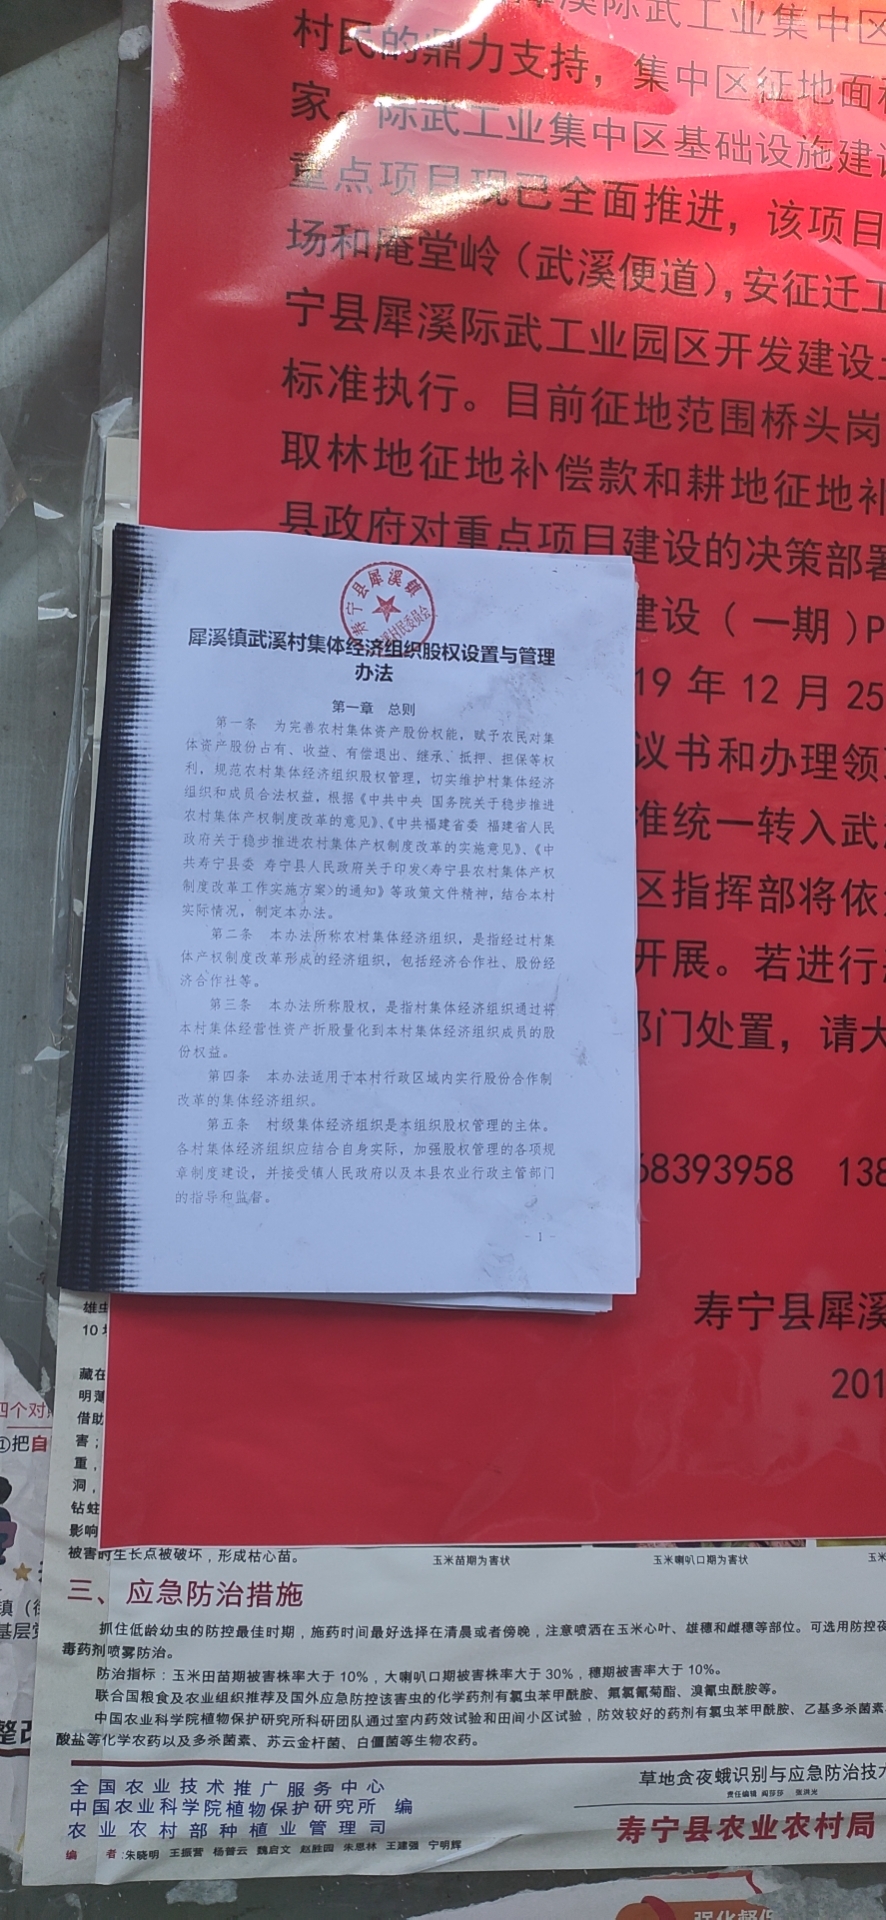 犀溪际武工业集中区
村民的鼎力支持，集中区征地面
家。际武工业集中区基础设施建设
重点项目现已全面推进，该项目
场和庵堂岭（武溪便道），安征迁工
宁县犀溪际武工业园区开发建设
标准执行。目前征地范围桥头岗
取林地征地补偿款和耕地征地补
县政府对重点项目建设的决策部署
建设（一期）P
19年12月25
议书和办理领
准统一转入武
区指挥部将依
开展。若进行
部门处置，请大
68393958 138
寿宁县犀溪
201
寿宁县犀溪镇
村民委员会
犀溪镇武溪村集体经济组织股权设置与管理
办法
第一章 总则
第一条 为完善农村集体资产股份权能，赋予农民对集
体资产股份占有、收益、有偿退出、继承、抵押、担保等权
利，规范农村集体经济组织股权管理，切实维护村集体经济
组织和成员合法权益，根据《中共中央 国务院关于稳步推进
农村集体产权制度改革的意见》、《中共福建省委 福建省人民
政府关于稳步推进农村集体产权制度改革的实施意见》、《中
共寿宁县委 寿宁县人民政府关于印发〈寿宁县农村集体产权
制度改革工作实施方案〉的通知》等政策文件精神，结合本村
实际情况，制定本办法。
第二条 本办法所称农村集体经济组织，是指经过村集
体产权制度改革形成的经济组织，包括经济合作社、股份经
济合作社等。
第三条 本办法所称股权，是指村集体经济组织通过将
本村集体经营性资产折股量化到本村集体经济组织成员的股
份权益。
第四条 本办法适用于本村行政区域内实行股份合作制
改革的集体经济组织。
第五条 村级集体经济组织是本组织股权管理的主体。
各村集体经济组织应结合自身实际，加强股权管理的各项规
章制度建设，并接受镇人民政府以及本县农业行政主管部门
的指导和监督。
- 1 -
雄虫
10
藏在
明薄
借助
害；
重，
洞，
钻蛀
影响
被害时生长点被破坏，形成枯心苗。
玉米苗期为害状
玉米喇叭口期为害状
玉米
三、应急防治措施
抓住低龄幼虫的防控最佳时期，施药时间最好选择在清晨或者傍晚，注意喷洒在玉米心叶、雄穗和雌穗等部位。可选用防控夜
毒药剂喷雾防治。
防治指标：玉米田苗期被害株率大于10%，大喇叭口期被害株率大于30%，穗期被害率大于10%。
联合国粮食及农业组织推荐及国外应急防控该害虫的化学药剂有氯虫苯甲酰胺、氟氯氰菊酯、溴氰虫酰胺等。
中国农业科学院植物保护研究所科研团队通过室内药效试验和田间小区试验，防效较好的药剂有氯虫苯甲酰胺、乙基多杀菌素
酸盐等化学农药以及多杀菌素、苏云金杆菌、白僵菌等生物农药。
全国农业技术推广服务中心
中国农业科学院植物保护研究所 编
农业农村部种植业管理司
编 者：朱晓明 王振营 杨普云 魏启文 赵胜园 朱恩林 王建强 宁明辉
草地贪夜蛾识别与应急防治技术
寿宁县农业农村局
四个对
①把自
镇（街
基层党
整改
强化督促